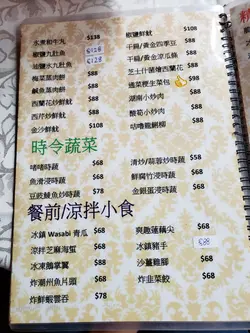 水煮和牛丸 $138
椒鹽九肚魚 $128
油鹽水九肚魚 $128
梅菜蒸肉餅 $88
鹹魚蒸肉餅 $88
西蘭花炒鮮魷 $88
西芹炒鮮魷 $88
金沙鮮魷 $108
椒鹽鮮魷 $108
干鍋/黃金四季豆 $88
干鍋/黃金涼瓜條 $88
芝士什菌燴西蘭花 $88
遠菜梗生菜包 $98
湖南小炒肉 $88
酸筍小炒肉 $88
咕嚕龍脷柳 $88
時令蔬菜
啫啫時蔬 $68
魚湯浸時蔬 $68
豆豉鯪魚炒時蔬 $68
清炒/蒜蓉炒時蔬 $58
鮮腐竹浸時蔬 $68
金銀蛋浸時蔬 $68
餐前/涼拌小食
冰鎮 Wasabi 青瓜 $68
涼拌芝麻海蜇 $68
冰凍鵝掌翼 $88
炸潮州魚片頭 $68
炸鮮蝦雲吞 $78
爽趣蓮藕尖 $68
冰鎮豬手
沙薑雞腳 $68
炸韭菜餃 $68